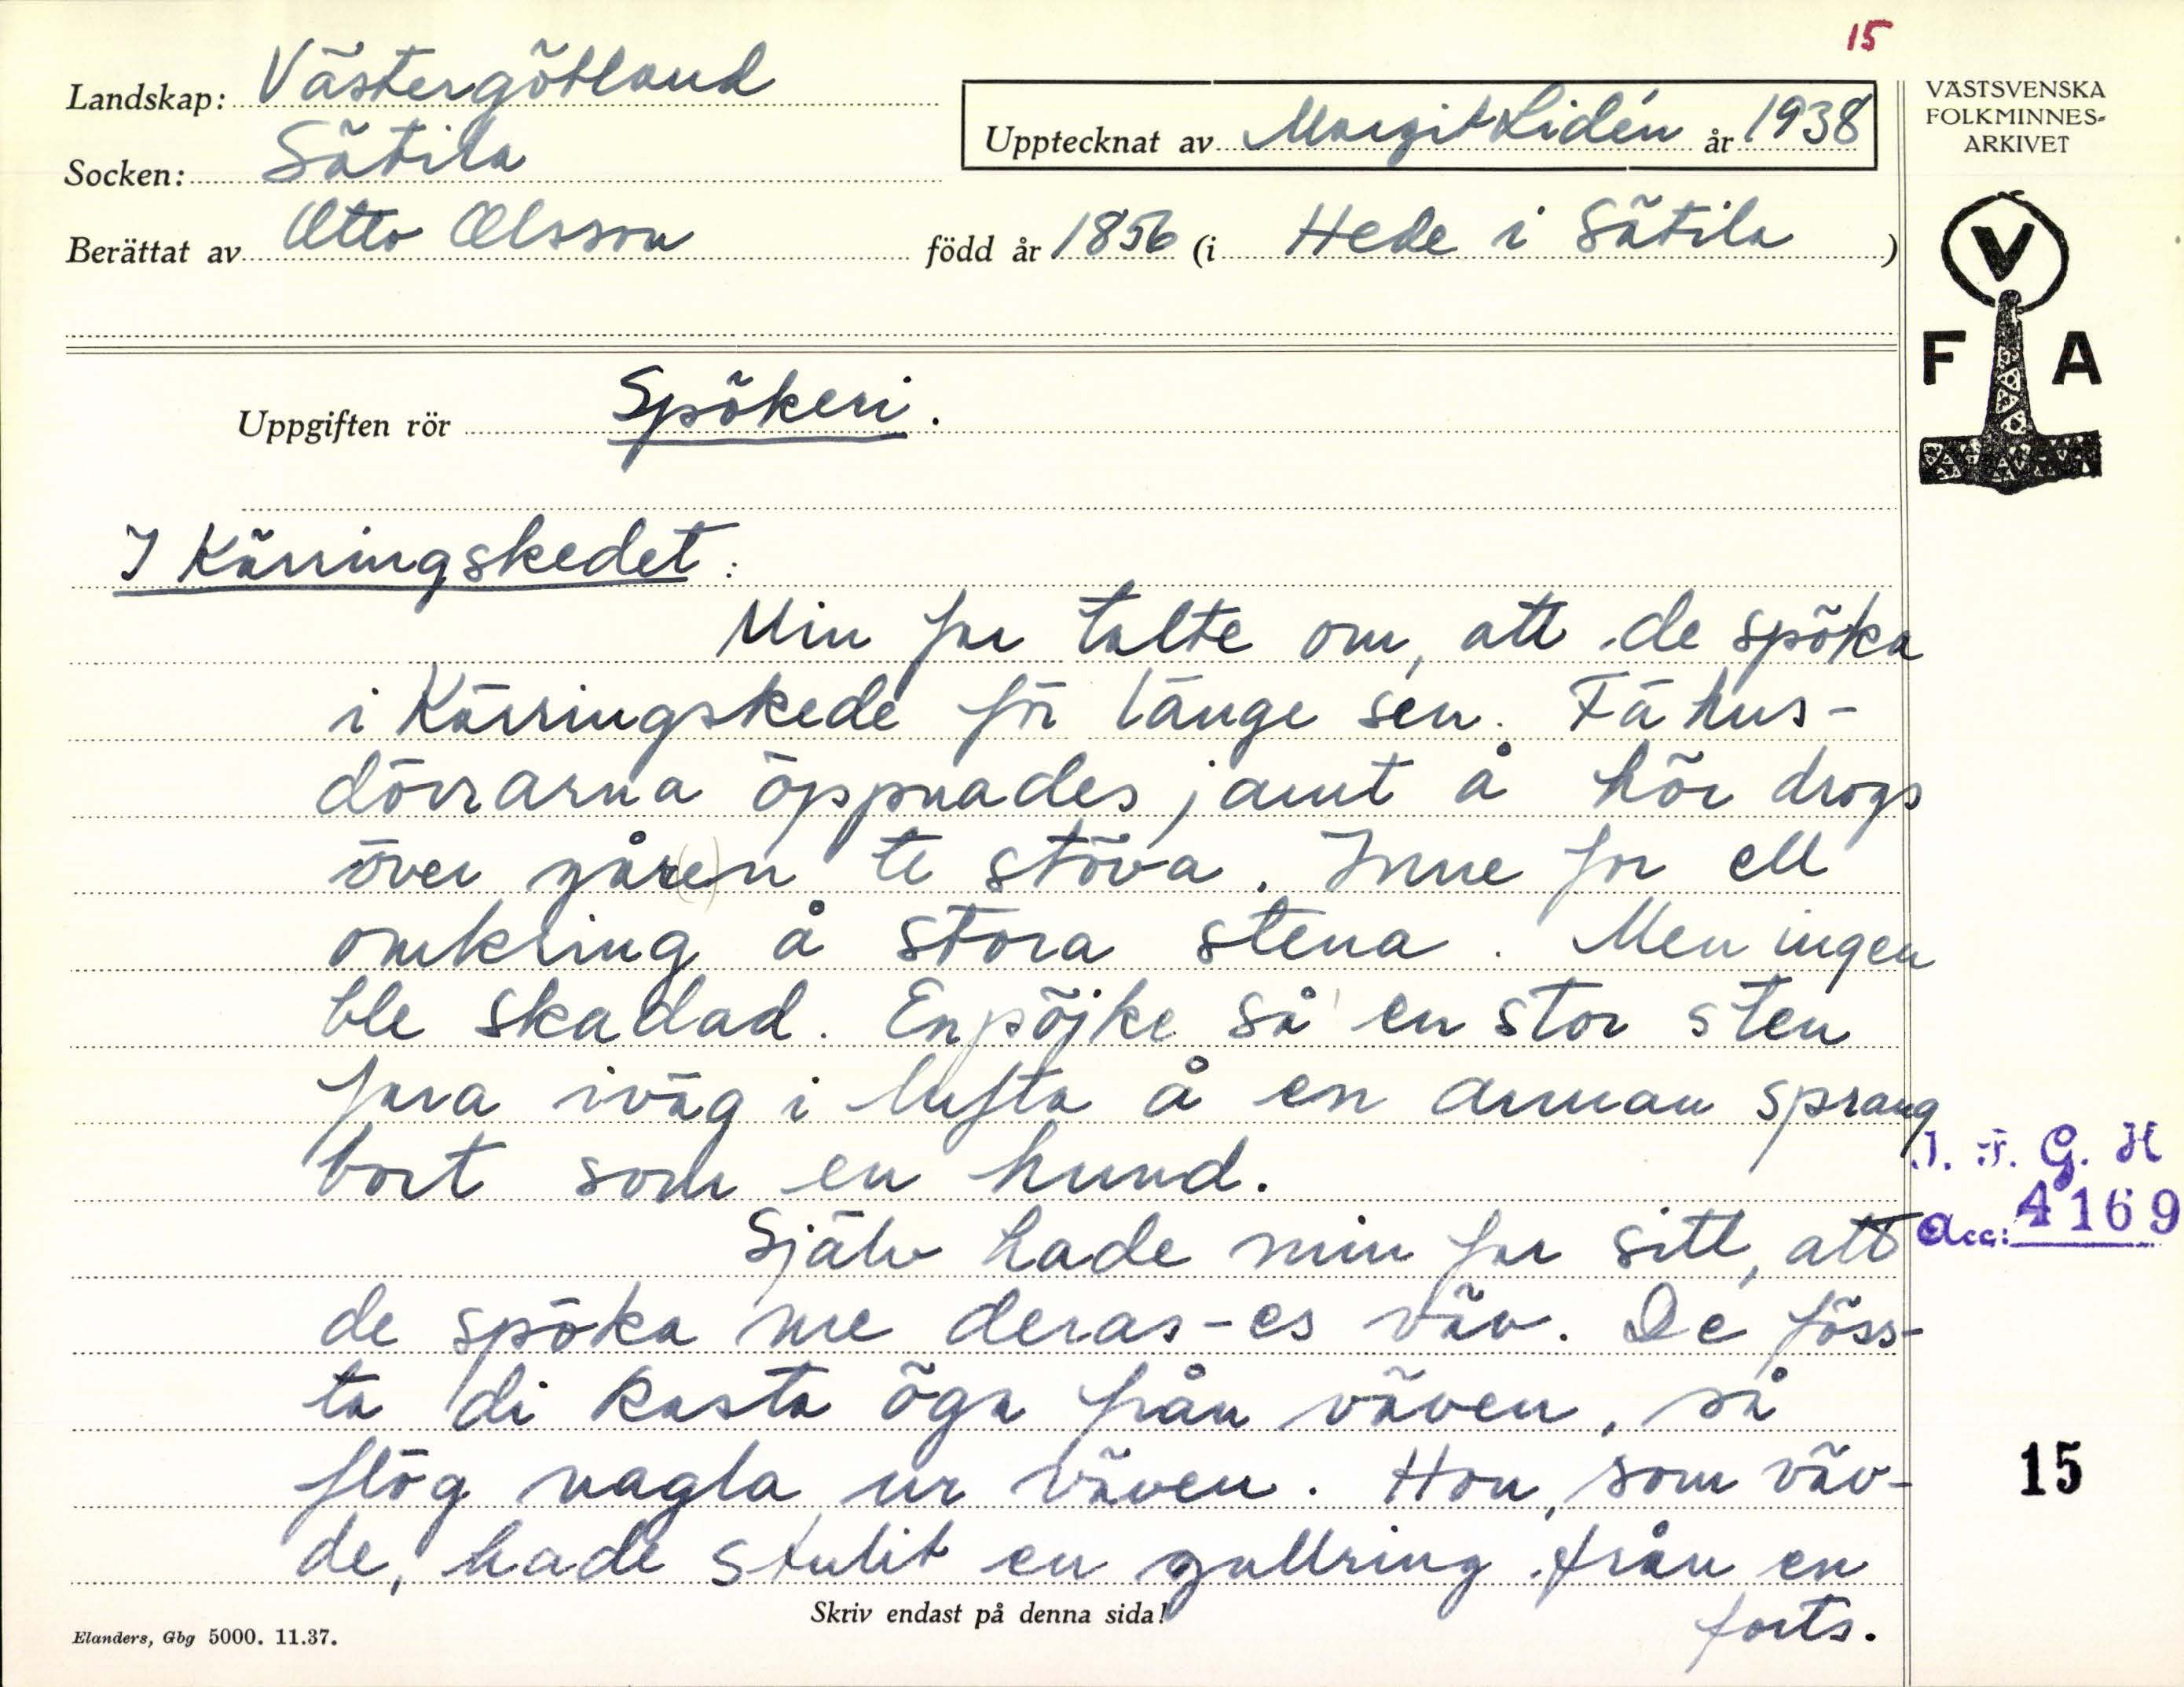 15
Landskap: Västergötland
Socken: Sätila
Berättat av Otto Olsson född år 1856 (i Hede i Sätila)
Upptecknat av Margit Lidén år 1938
VÄSTSVENSKA
FOLKMINNES-
ARKIVET
V
F A
Uppgiften rör Spökeri.
I Kärringskedet:
Min far talte om, att de spöka
i Kärringskede för länge sen. Fähus-
dörrarna öppnades jamt å hör drogs
över gåren te stöva. Inne for ell
omkring å stora stena. Men ingen
ble skadad. En pöjke så en stor sten
fara iväg i lufta å en annan sprang
bort som en hund.
Själv hade min far sitt, att
de spöka me deras-es väv. De föss-
ta di kasta öga från väven, så
flög nagla ur väven. Hon, som väv-
de, hade stulit en gullring från en
forts.
I. F. G. H
Acc: 4169
15
Skriv endast på denna sida!
Elanders, Gbg 5000. 11.37.